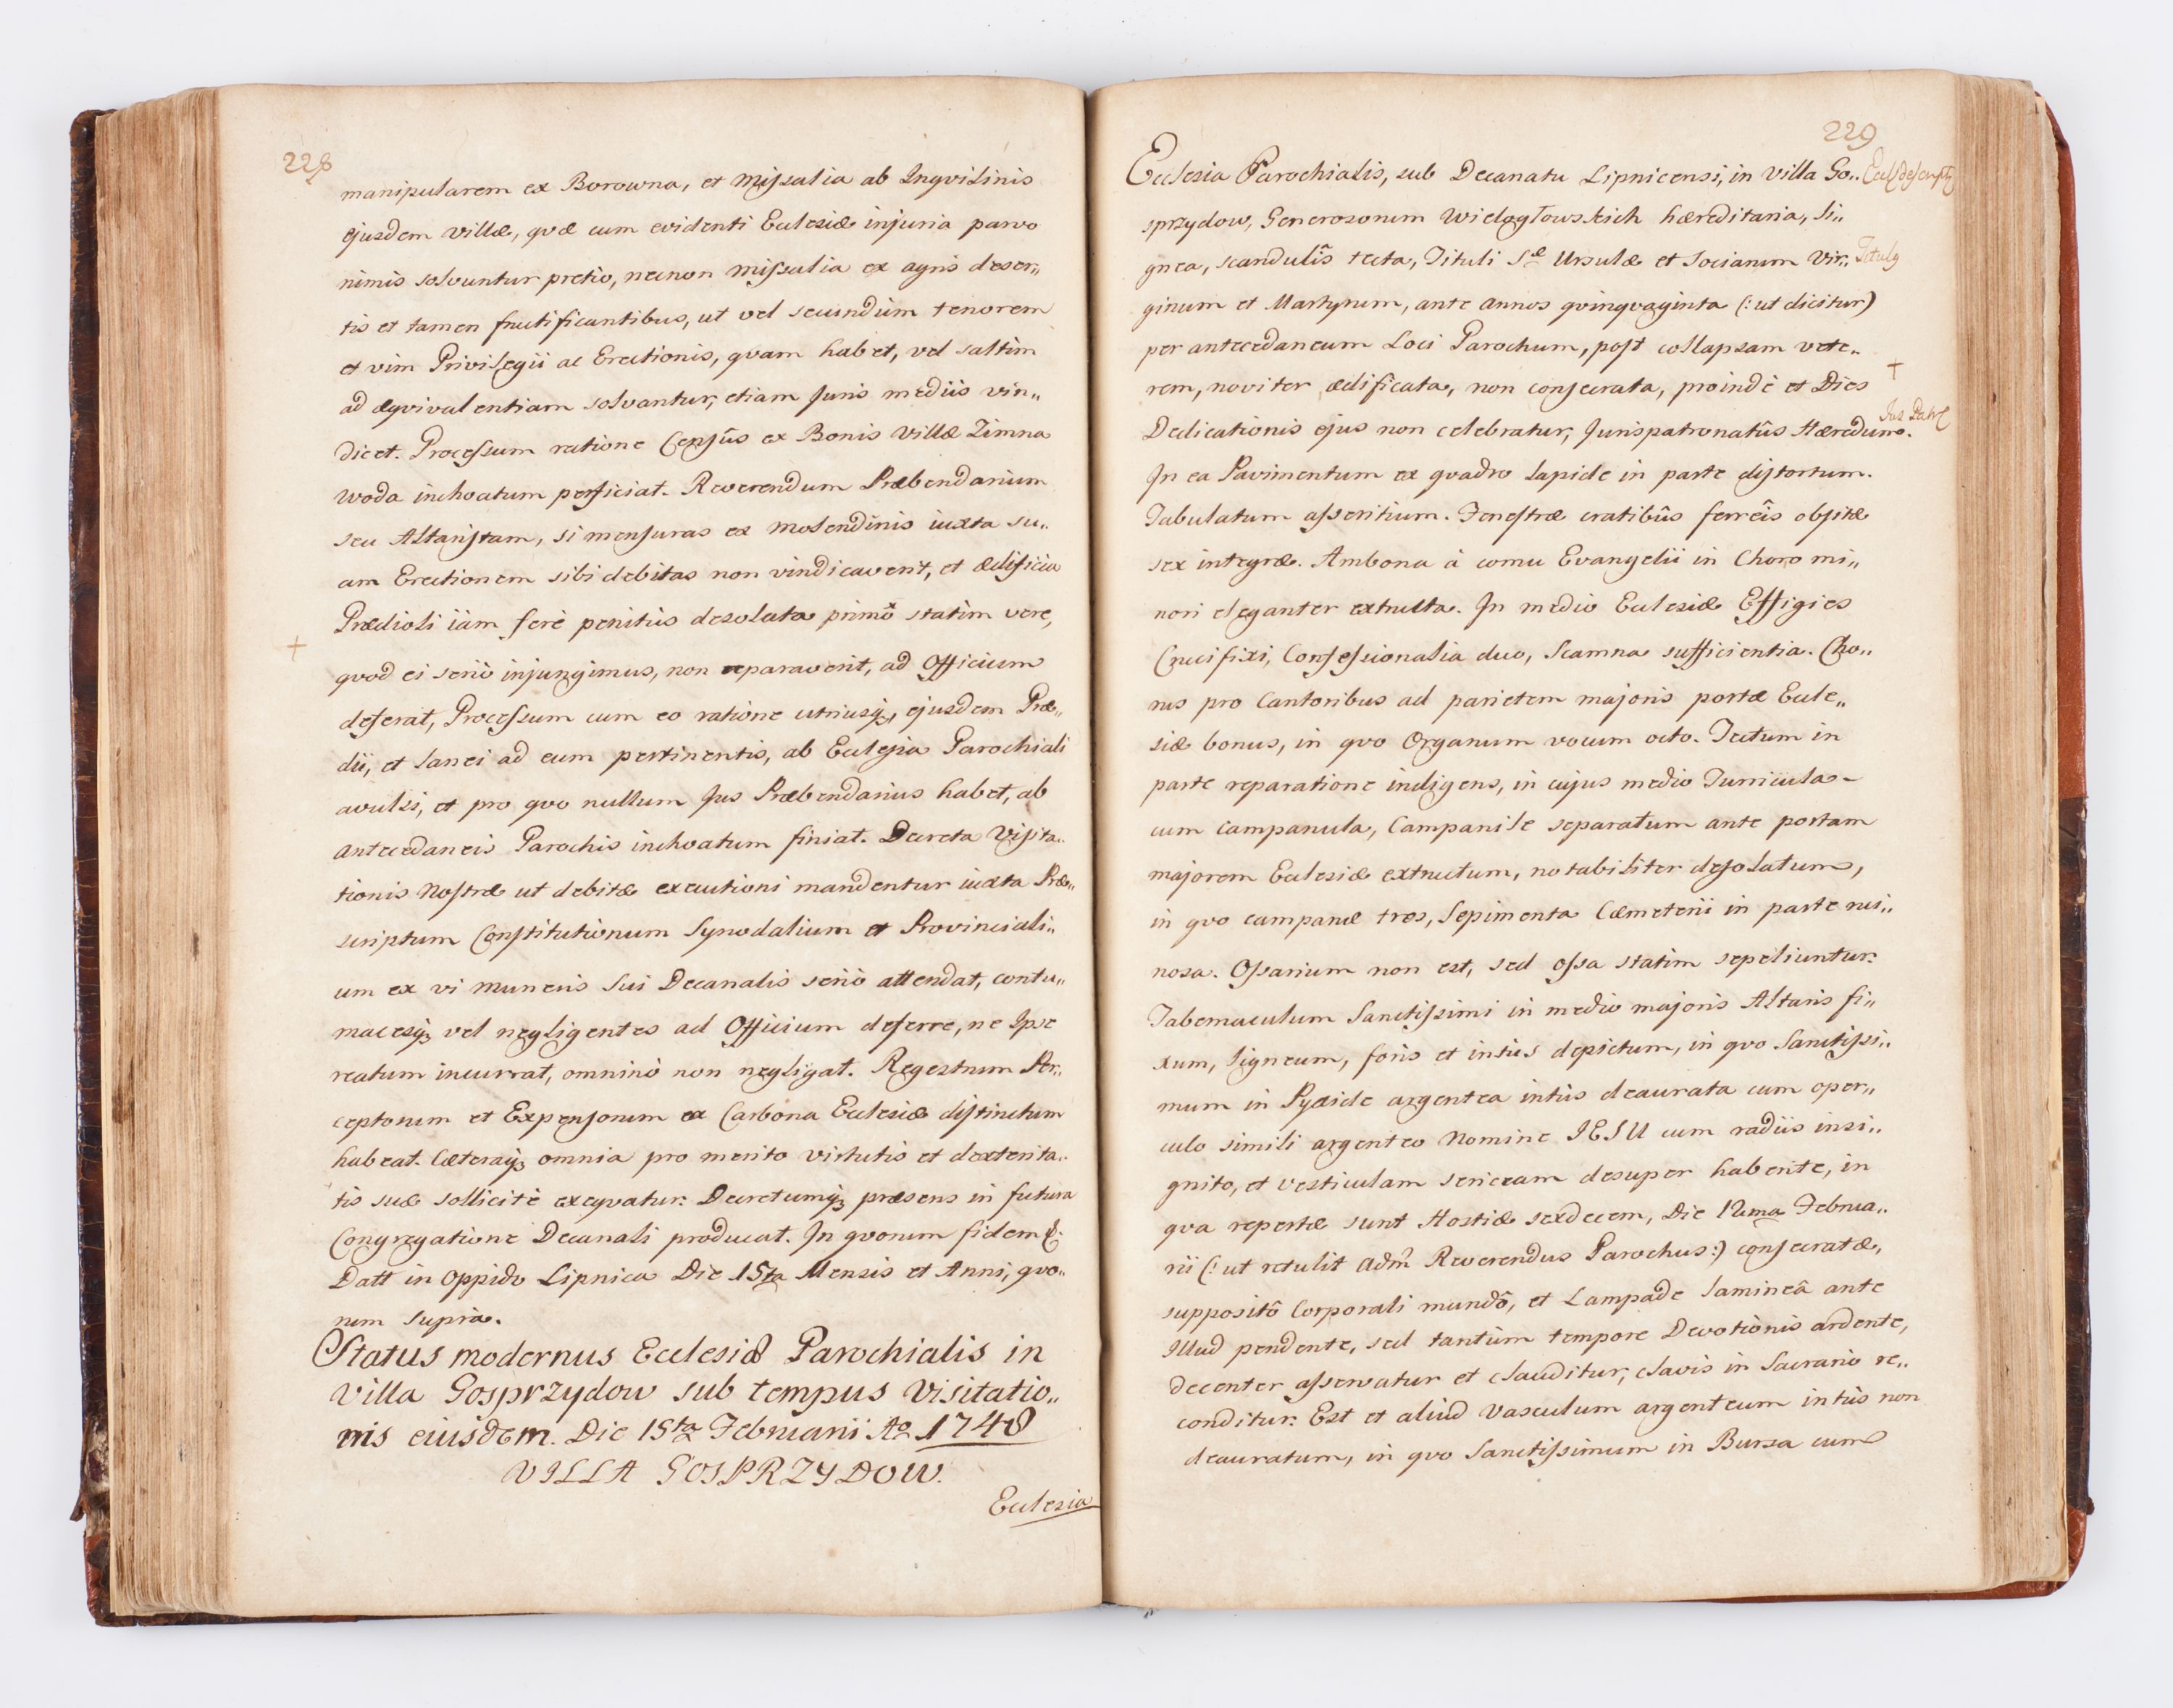 228
manipularem ex Borowna, et Missalia ab Inqvilinis
ejusdem villæ, qvæ cum evidenti Eclesiæ injuria parvo
nimis solvuntur pretio, necnon Missalia ex agris deser„
tis et tamen fructificantibus, ut vel secundùm tenorem
et vim Privilegii ac Erectionis, qvam habet, vel saltim
ad æqvivalentiam solvantur, etiam Juris mediis vin„
dicet. Processum ratione Censûs ex Bonis Villæ Zimna
woda inchoatum perficiat. Reverendum Præbendarium
seu Altaristam, si mensuras ex Molendinis iuxta su„
am Erectionem sibi debitas non vindicaverit, et ædificia
Prædioli iàm ferè penitùs desolata primô statim vere,
+
qvod ei seriò injungimus, non reparaverit, ad Officium
deferat, Processum cum eo ratione utriusq3, ejusdem Præ„
dii, et Lanei ad eum pertinentis, ab Eclesia Parochiali
avulsi, et pro qvo nullum Jus Præbendarius habet, ab
antecedaneis Parochis inchoatum finiat. Decreta Visita„
tionis Nostræ ut debitæ executioni mandentur iuxta Præ„
scriptum Constitutionum Synodalium et Provinciali„
um ex vi muneris sui Decanalis seriò attendat, contu„
macesq3 vel negligentes ad Officium deferre, ne Ipse
reatum incurrat, omninò non negligat. Regestrum Per„
ceptorum et Expensorum ex Carbona Eclesiæ distinctum
habeat. Cæteraq3 omnia pro merito virtutis et dexterita„
tis suæ sollicitè exeqvatur. Decretumq3 præsens in futura
Congregatione Decanali producat. In qvorum fidem &.
Datt in Oppido Lipnica Die 15ta Mensis et Anni, qvo„
rum supra.
Status modernus Ecclesiæ Parochialis in
villa Gosprzydow sub tempus Visitatio„
nis eiusdem. Die 15ta Februarii Ao 1748
VILLA GOSPRZYDOW.
Eclesia
229
Ecclesia Parochialis, sub Decanatu Lipnicensi, in villa Go„
sprzydow, Generosorum Wielogłowskich hæreditaria, li„
gnea, scandulîs tecta, Tituli Sæ Ursulæ et Sociarum Vir„
Titulg
ginum et Martyrum, ante annos qvinqvaginta (: ut dicitur)
per antecedaneum Loci Parochum, post collapsam vete„
+
rem, noviter ædificata, non consecrata, proindè et Dies
Jus Patr
Dedicationis ejus non celebratur, Jurispatronatûs Hæredum.
In ea Pavimentum ex qvadro lapide in parte distortum.
Tabulatum asseritium. Fenestræ cratibûs ferreîs obsitæ
sex integræ. Ambona à cornu Evangelii in Choro mi„
nori eleganter extructa. In medio Eclesiæ Effigies
Crucifixi, Confessionalia duo, Scamna sufficientia. Cho„
rus pro Cantoribus ad parietem majoris portæ Ecle„
siæ bonus, in qvo Organum vocum octo. Tectum in
parte reparatione indigens, in cujus medio Turricula
cum campanula, Campanile separatum ante portam
majorem Eclesiæ extructum, notabiliter desolatum,
in qvo campanæ tres, Sepimenta Cæmeterii in parte rui„
nosa. Ossarium non est, sed ossa statim sepeliuntur.
Tabernaculum Sanctissimi in medio majoris Altaris fi„
xum, ligneum, foris et intùs depictum, in qvo Sanctissi„
mum in Pyxide argentea intùs deaurata cum oper„
culo simili argenteo Nomine IESU cum radiis insi„
gnito, et vesticulam sericeam desuper habente, in
qva repertæ sunt Hostiæ sexdecem, Die 12ma Februa„
rii (: ut retulit Adm Reverendus Parochus:) consecratæ,
suppositô Corporali mundô, et Lampade lamineâ ante
Illud pendente, sed tantùm tempore Devotionis ardente,
decenter asservatur et clauditur, clavis in Sacrario re„
conditur. Est et aliud Vasculum argenteum intùs non
deauratum, in qvo Sanctissimum in Bursa cum